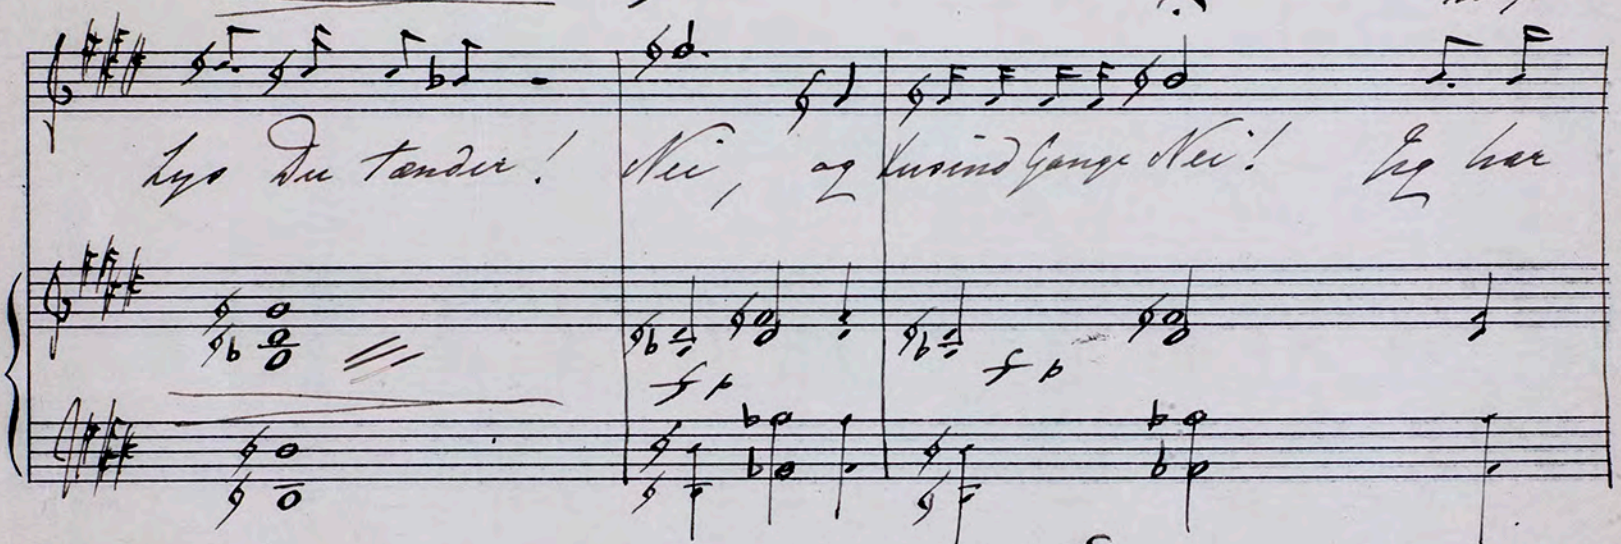 Lys Du tænder! Nei, og tusind Gange Nei! Jeg har
f p f p